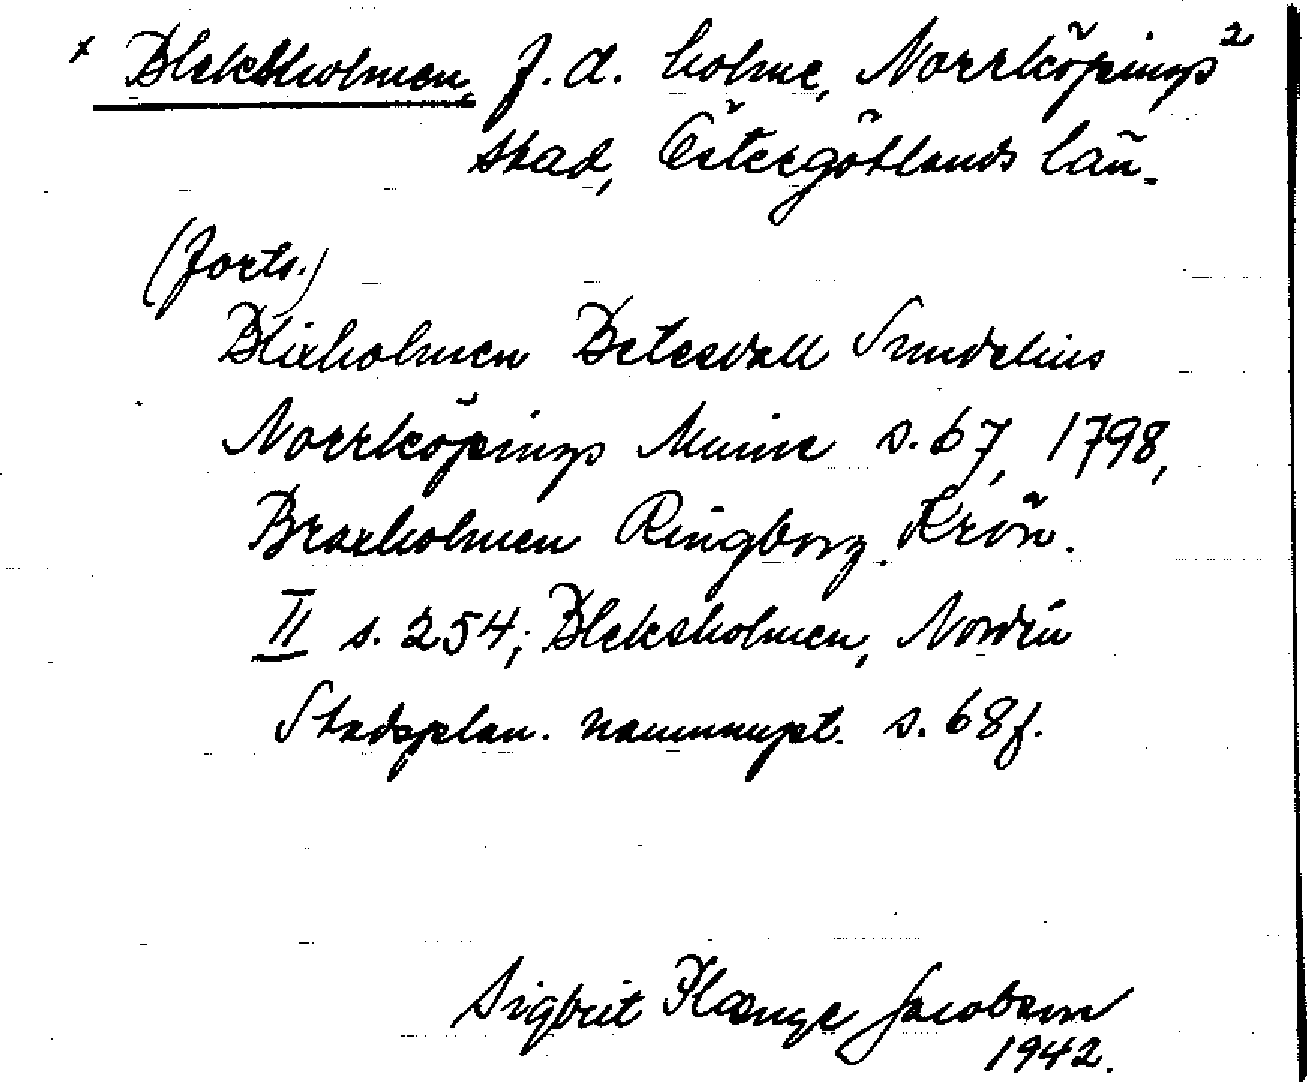 x Bleksholmen, f.d. holme, Norrköpings 2
stad, Östergötlands län.
(forts.)
Blixholmen Betesvall Sundelius
Norrköpings Minne s. 67, 1798,
Braxholmen Ringborg Krön.
II s. 254; Bleksholmen, Nordén
Stadsplan. namnuppt. s. 68 f.
Sigbrit Plænge Jacobson
1942.